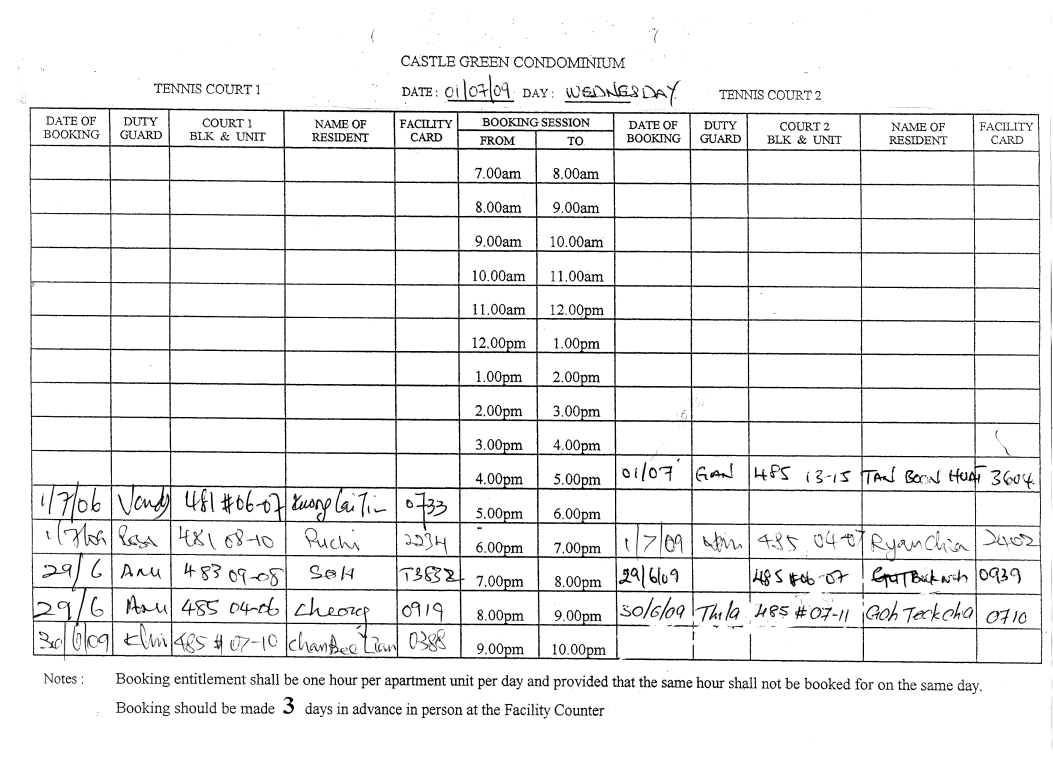 CASTLE GREEN CONDOMINIUM
TENNIS COURT 1 DATE: 01/07/09 DAY: WEDNESDAY TENNIS COURT 2
DATE OF BOOKING DUTY GUARD COURT 1 BLK & UNIT NAME OF RESIDENT FACILITY CARD BOOKING SESSION FROM TO DATE OF BOOKING DUTY GUARD COURT 2 BLK & UNIT NAME OF RESIDENT FACILITY CARD
7.00am 8.00am
8.00am 9.00am
9.00am 10.00am
10.00am 11.00am
11.00am 12.00pm
12.00pm 1.00pm
1.00pm 2.00pm
2.00pm 3.00pm
3.00pm 4.00pm
4.00pm 5.00pm 01/07 GAN 485 13-15 TAN BOON HUAT 3604
1/7/06 481 #06-07 0733 5.00pm 6.00pm
1/7/09 481 08-10 Puchi 2234 6.00pm 7.00pm 1/7/09 485 04-07 Ryan Chia 2402
29/6 Anu 483 09-08 SOH T3832 7.00pm 8.00pm 29/6/09 485 #06-07 0939
29/6 Anu 485 04-06 Cheong 0919 8.00pm 9.00pm 30/6/09 Thila 485 #07-11 Goh Teck cha 0710
30/6/09 485 # 07-10 Chan Bee Lian 0388 9.00pm 10.00pm
Notes : Booking entitlement shall be one hour per apartment unit per day and provided that the same hour shall not be booked for on the same day.
Booking should be made 3 days in advance in person at the Facility Counter